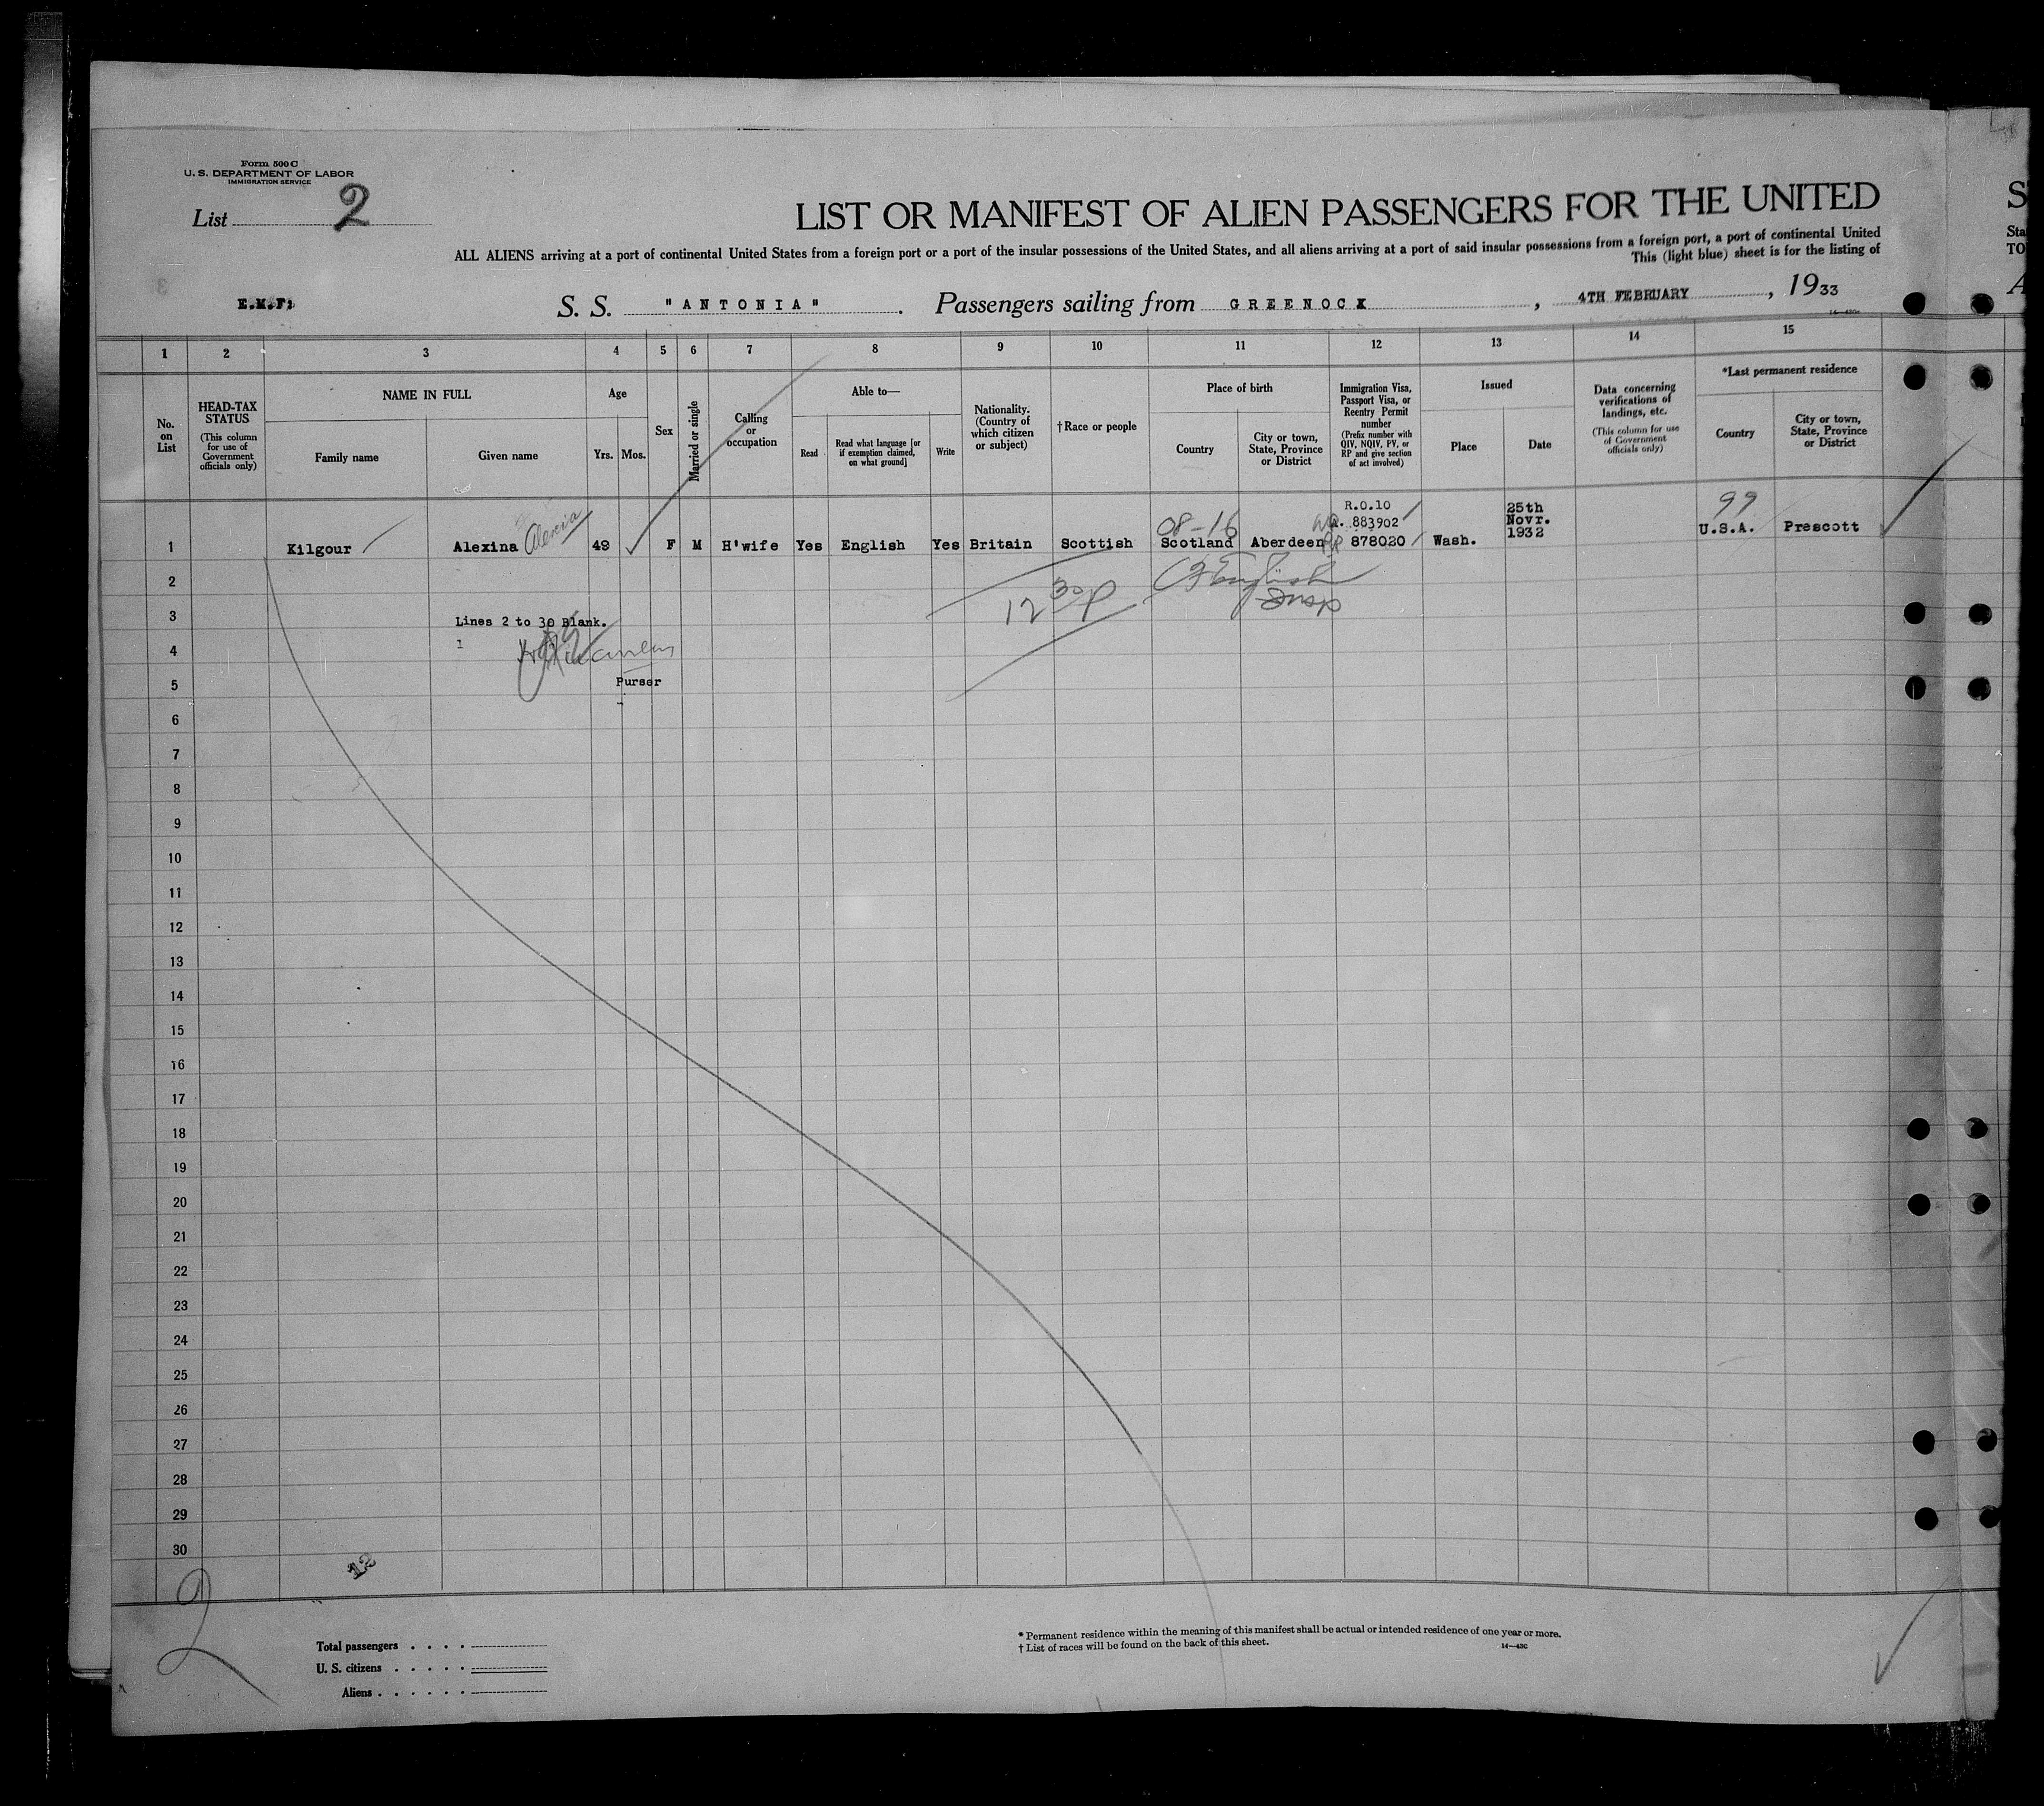 Form 500 C
U. S. DEPARTMENT OF LABOR
IMMIGRATION SERVICE
List 2
LIST OR MANIFEST OF ALIEN PASSENGERS FOR THE UNITED
ALL ALIENS arriving at a port of continental United States from a foreign port or a port of the insular possessions of the United States, and all aliens arriving at a port of said insular possessions from a foreign port, a port of continental United
This (light blue) sheet is for the listing of
E.M.F: S. S. "ANTONIA" . Passengers sailing from GREENOCK , 4TH FEBRUARY , 1933
1 2 3 4 5 6 7 8 9 10 11 12 13 14 15
No. on List
HEAD-TAX STATUS (This column for use of Government officials only)
NAME IN FULL
Family name
Given name
Age
Yrs. Mos.
Sex
Married or single
Calling or occupation
Able to—
Read
Read what language [or if exemption claimed, on what ground]
Write
Nationality. (Country of which citizen or subject)
†Race or people
Place of birth
Country
City or town, State, Province or District
Immigration Visa, Passport Visa, or Reentry Permit number (Prefix number with QIV, NQIV, PV, or RP and give section of act involved)
Issued
Place
Date
Data concerning verifications of landings, etc. (This column for use of Government officials only)
*Last permanent residence
Country
City or town, State, Province or District
R.O.10 25th 99
08-16 883902 Novr.
1 Kilgour Alexina 49 F M H'wife Yes English Yes Britain Scottish Scotland Aberdeen 878020 Wash. 1932 U.S.A. Prescott
2 English
3 12 30 P Insp
Lines 2 to 30 Blank.
4 1
5 Purser
6
7
8
9
10
11
12
13
14
15
16
17
18
19
20
21
22
23
24
25
26
27
28
29
30
12
2
Total passengers . . . .
U. S. citizens . . . . .
Aliens . . . . . .
* Permanent residence within the meaning of this manifest shall be actual or intended residence of one year or more.
† List of races will be found on the back of this sheet.
14—430